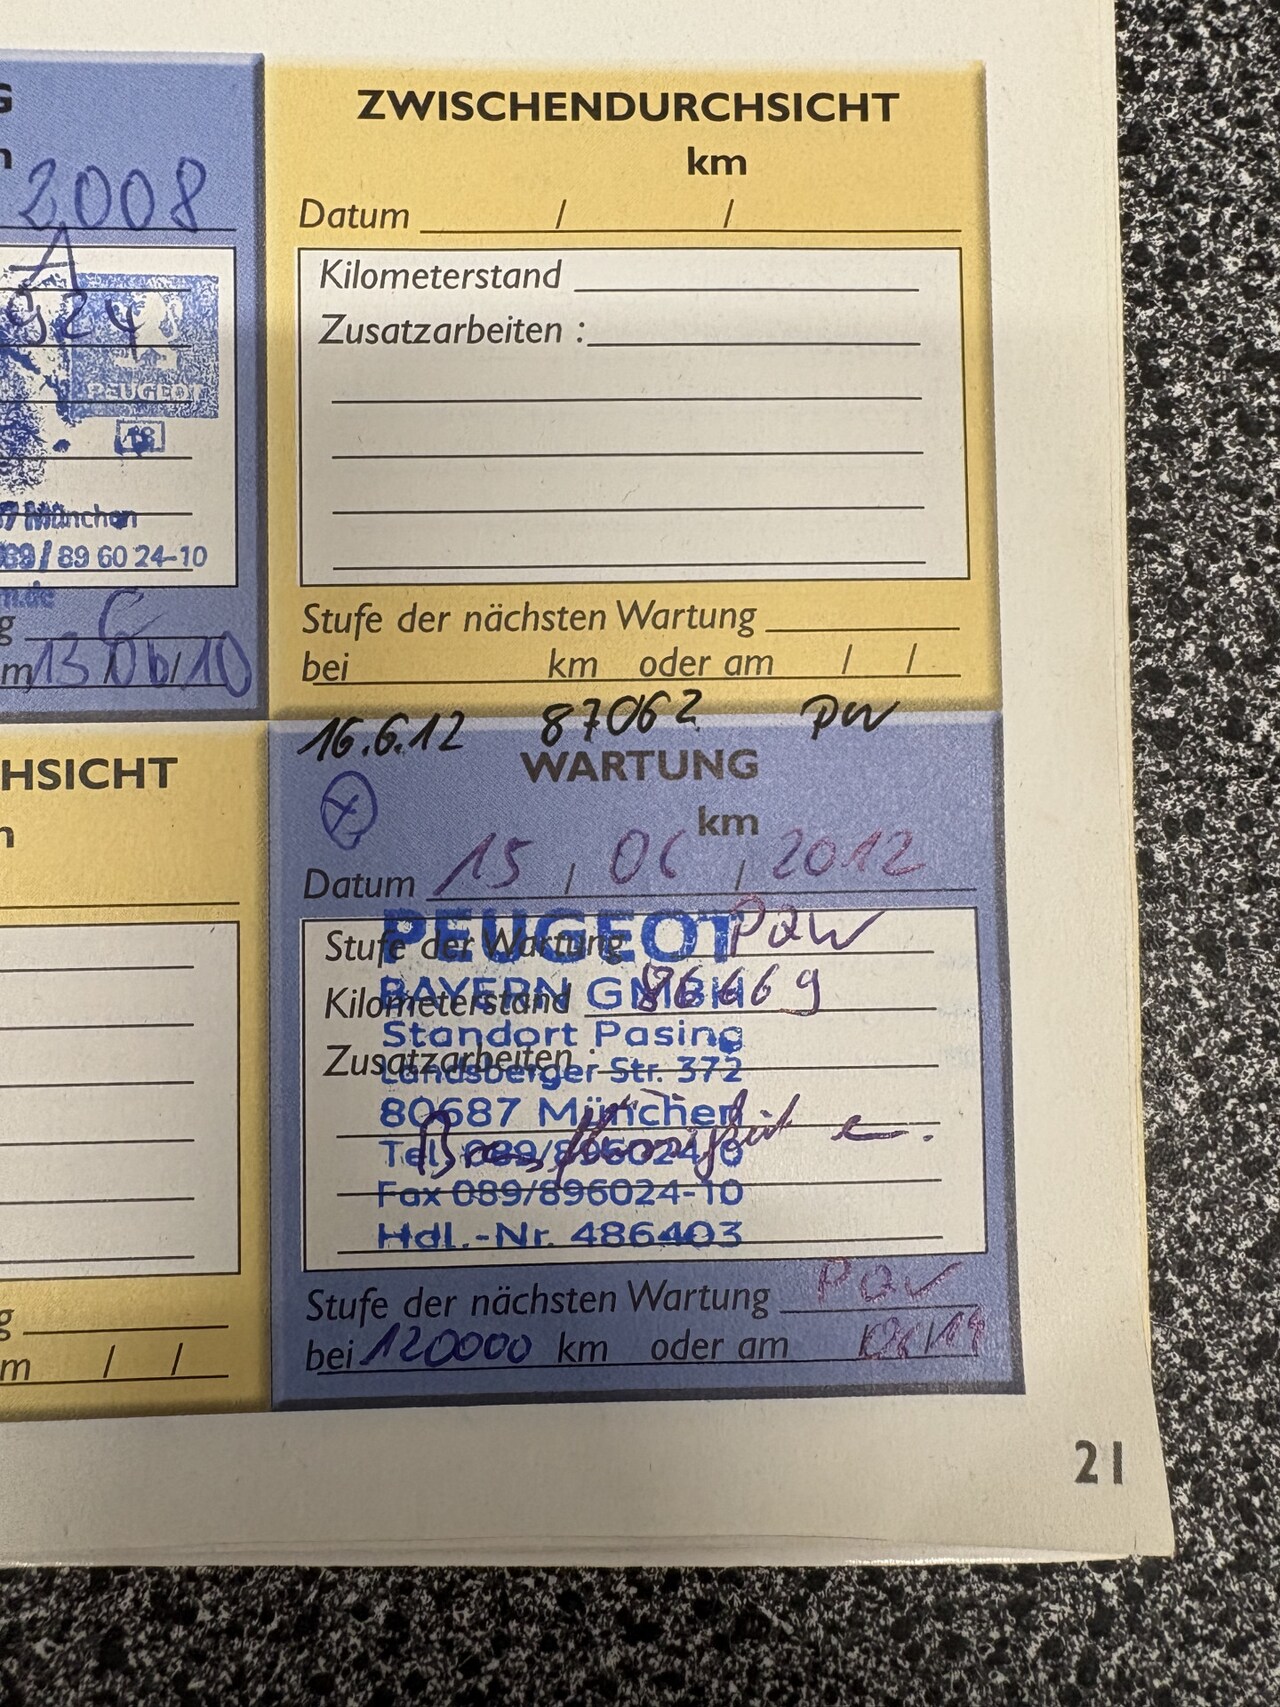 2008
A
924
PEUGEOT
18
München
089/89 60 24-10
m.de
C
13 06 10
ZWISCHENDURCHSICHT
km
Datum / /
Kilometerstand
Zusatzarbeiten :
Stufe der nächsten Wartung
bei km oder am / /
HSICHT
16.6.12 87062
WARTUNG
km
Datum 15 / 06 / 2012
PEUGEOT
Stufe der Wartung
BAYERN GMBH
Kilometerstand 86669
Standort Pasing
Zusatzarbeiten :
Landsberger Str. 372
80687 München
Bremsflüssigkeit e.
Tel. 089/896024-0
Fax 089/896024-10
Hdl.-Nr. 486403
Stufe der nächsten Wartung
bei 120000 km oder am
21